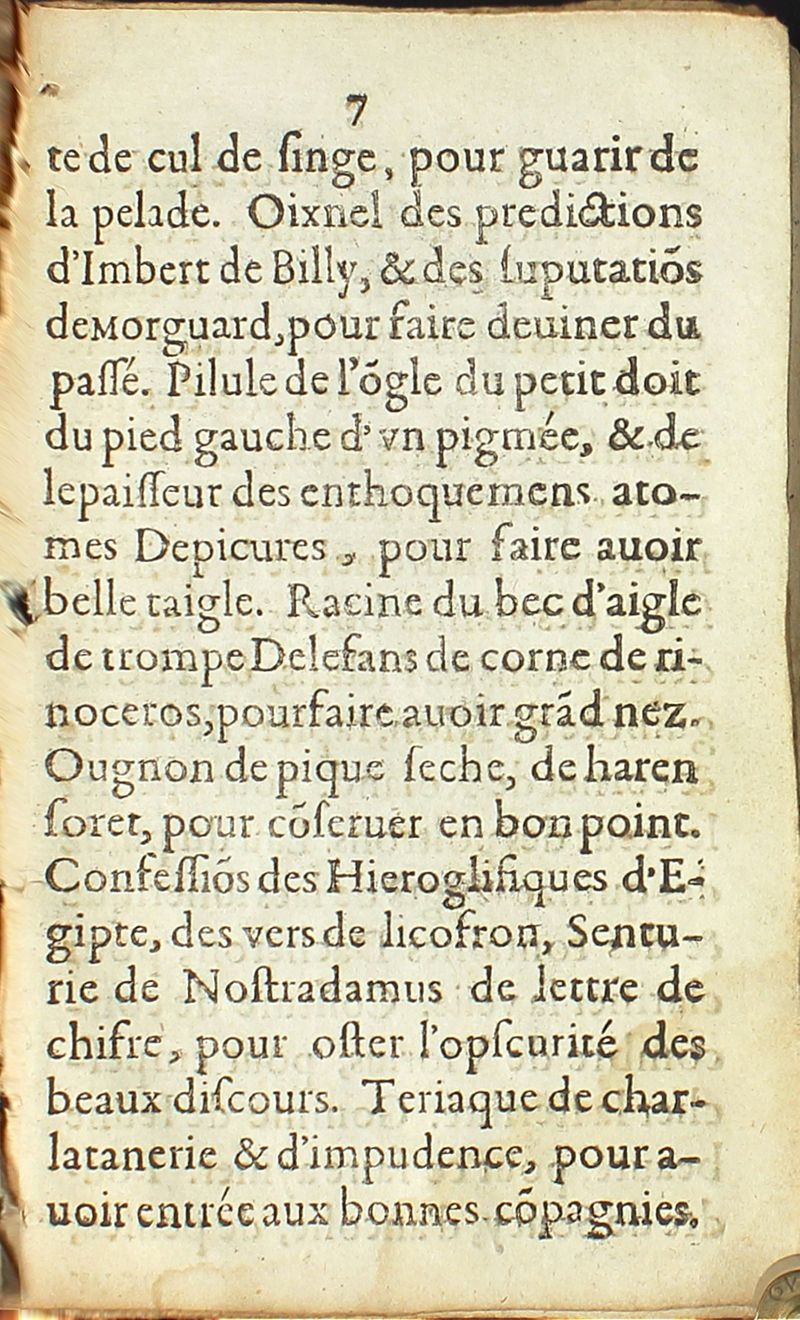 7
te de cul de ſinge, pour guarir de
la pelade. Oixnel des predictions
d'Imbert de Billy, & des ſuputatiōs
deMorguard,pour faire deuiner du
paſſé. Pilule de l'ōgle du petit doit
du pied gauche d'vn pigmée, & de
lepaiſſeur des enthoquemens ato-
mes Depicures, pour faire auoir
belle taigle. Racine du bec d'aigle
de trompe Delefans de corne de ri-
noceros,pour faire auoir grād nez.
Ougnon de pique ſeche, de haren
ſoret, pour cōſeruer en bon point.
Confeſſiōs des Hieroglifiques d'E-
gipte, des vers de licofron, Sentu-
rie de Noſtradamus de lettre de
chifre, pour oſter l'opſcurité des
beaux diſcours. Teriaque de char-
latanerie & d'impudence, pour a-
uoir entrée aux bonnes cōpagnies.